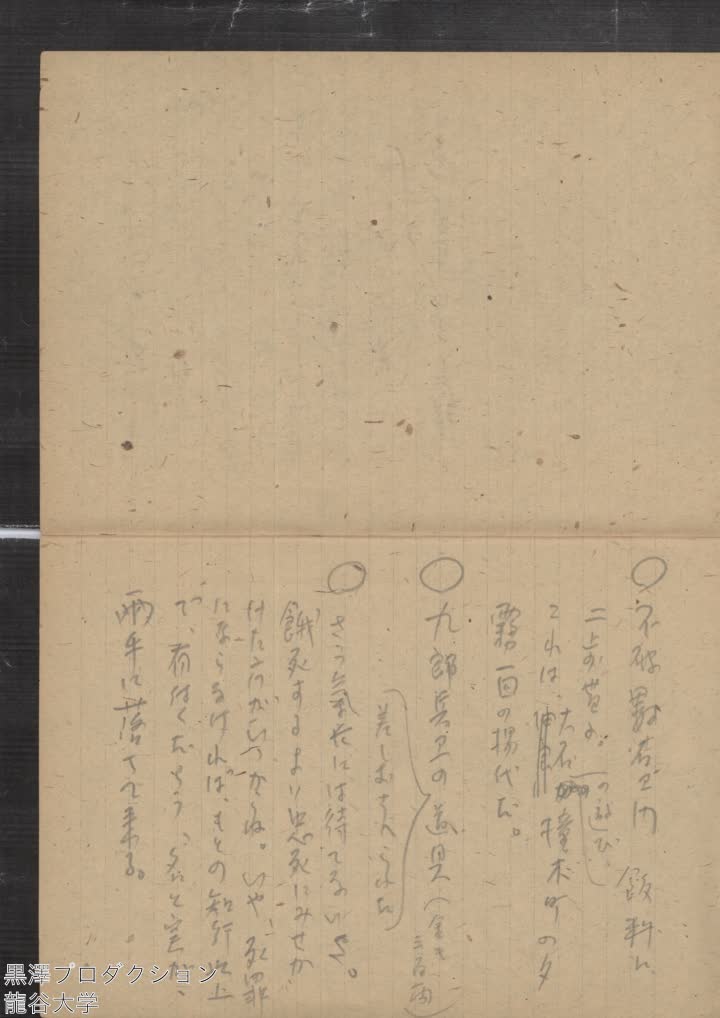 ○不破數右衛門 飯料に
二歩無心。
これは、大石の遊び、撞木町の夕
霧一回の揚代だ。
○九郎兵衛の道具(金も三百両)
差しおさへられた
○さう気長には待てないさ。
餓死するより忠死にみせか
けた方がいゝからね。いや、死罪
にならなければ、もとの知行以上
で、有付くだらう、名と実が、
両手に落ちて来る。
黒澤プロダクション
龍谷大学